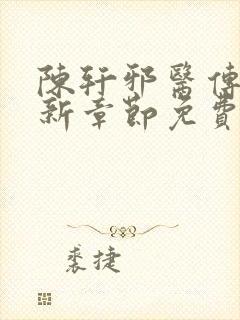 陳軒邪醫傳
新章節免費
裘捷